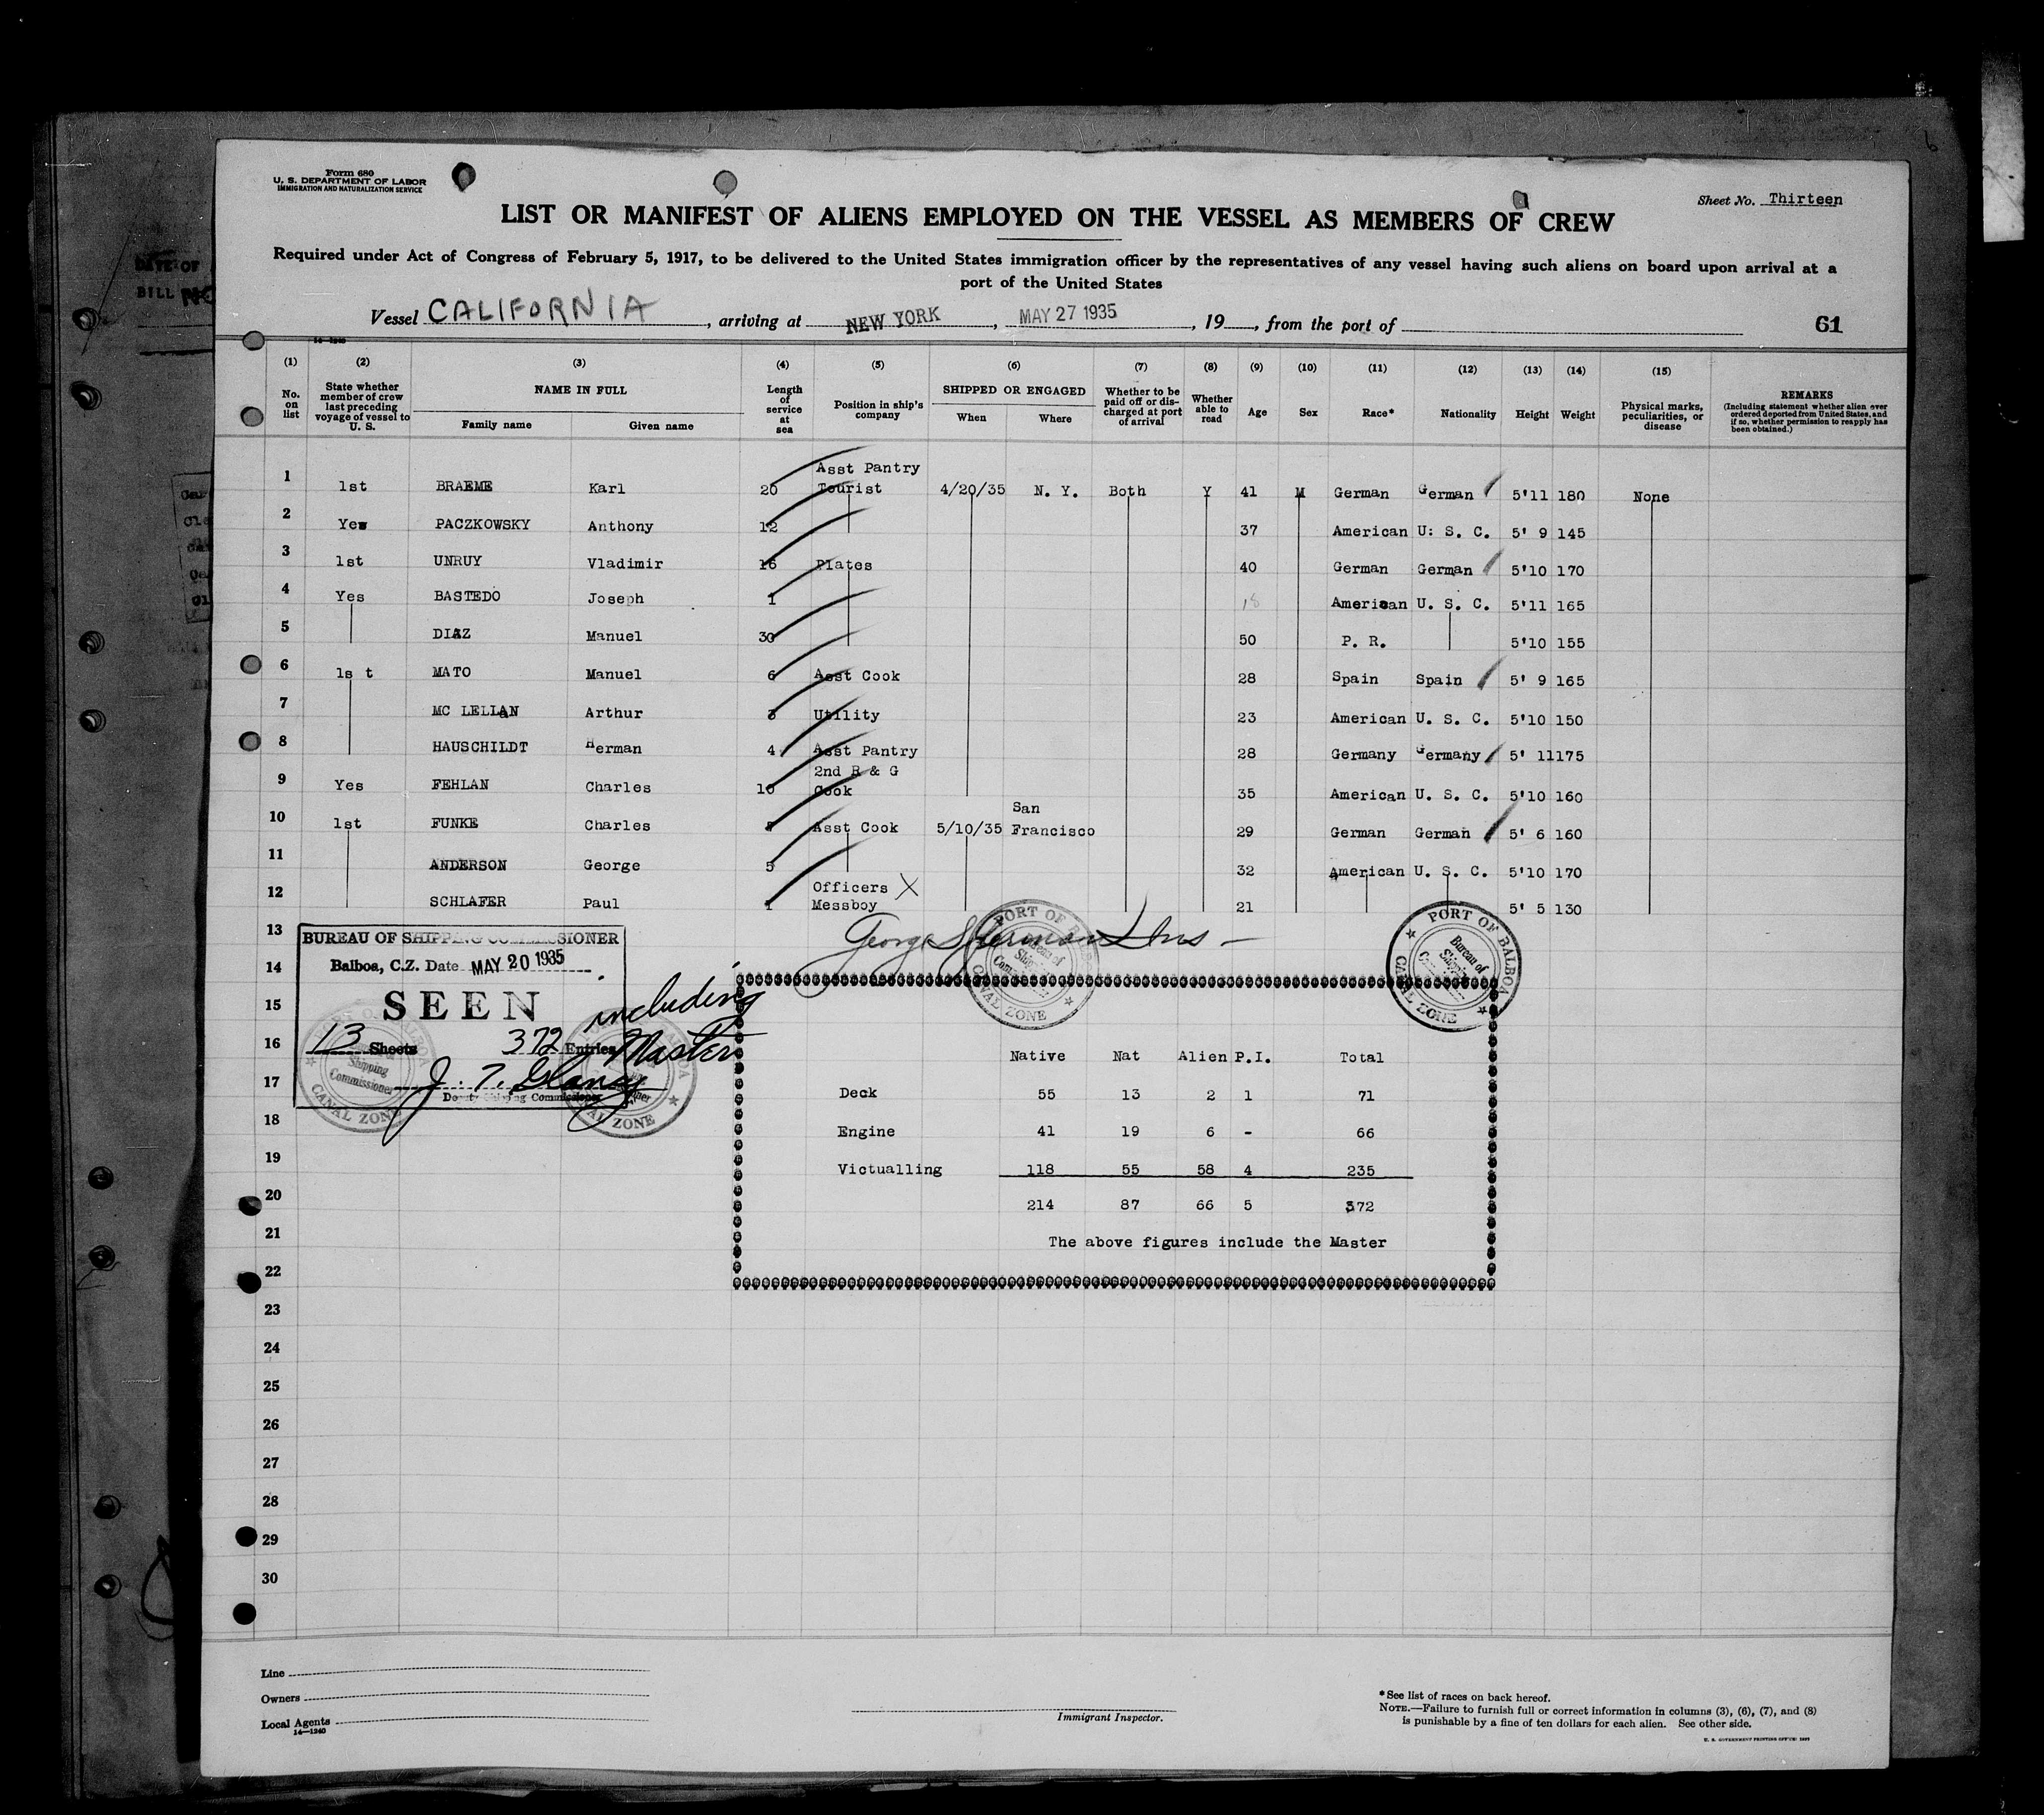 Form 680
U. S. DEPARTMENT OF LABOR
IMMIGRATION AND NATURALIZATION SERVICE
Sheet No. Thirteen
LIST OR MANIFEST OF ALIENS EMPLOYED ON THE VESSEL AS MEMBERS OF CREW
Required under Act of Congress of February 5, 1917, to be delivered to the United States immigration officer by the representatives of any vessel having such aliens on board upon arrival at a
port of the United States
Vessel CALIFORNIA, arriving at NEW YORK, MAY 27 1935, 19, from the port of
61
14-1240
(1) (2) (3) (4) (5) (6) (7) (8) (9) (10) (11) (12) (13) (14) (15)
No. on list
State whether member of crew last preceding voyage of vessel to U. S.
NAME IN FULL
Family name Given name
Length of service at sea
Position in ship's company
SHIPPED OR ENGAGED
When Where
Whether to be paid off or discharged at port of arrival
Whether able to read
Age Sex Race* Nationality Height Weight
Physical marks, peculiarities, or disease
REMARKS
(Including statement whether alien ever ordered deported from United States, and if so, whether permission to reapply has been obtained.)
Asst Pantry
1 1st BRAEME Karl 20 Tourist 4/20/35 N. Y. Both Y 41 M German German 5'11 180 None
2 Yes PACZKOWSKY Anthony 12 37 American U: S. C. 5' 9 145
3 1st UNRUY Vladimir 16 Plates 40 German German 5'10 170
4 Yes BASTEDO Joseph 1 18 American U. S. C. 5'11 165
5 DIAZ Manuel 30 50 P. R. 5'10 155
6 1s t MATO Manuel 6 Asst Cook 28 Spain Spain 5' 9 165
7 MC LELLAN Arthur 3 Utility 23 American U. S. C. 5'10 150
8 HAUSCHILDT Herman 4 Asst Pantry 28 Germany Germany 5' 11 175
2nd R & G
9 Yes FEHLAN Charles 10 Cook 35 American U. S. C. 5'10 160
San
10 1st FUNKE Charles Asst Cook 5/10/35 Francisco 29 German German 5' 6 160
11 ANDERSON George 5 32 American U. S. C. 5'10 170
Officers X
12 SCHLAFER Paul 1 Messboy 21 5' 5 130
13
George Sherman
PORT OF BALBOA
Bureau of Shipping Commissioner
CANAL ZONE
PORT OF BALBOA
Bureau of Shipping
CANAL ZONE
BUREAU OF SHIPPING COMMISSIONER
14
Balboa, C.Z. Date MAY 20 1935
15
SEEN
including
16
13 Sheets 372 Entries Master
17
J. T. Glancy
Deputy Shipping Commissioner
Shipping
Commissioner
CANAL ZONE
CANAL ZONE
Native Nat Alien P.I. Total
Deck 55 13 2 1 71
18
Engine 41 19 6 - 66
19
Victualling 118 55 58 4 235
20
214 87 66 5 372
21
The above figures include the Master
22
23
24
25
26
27
28
29
30
Line
Owners
Local Agents
14-1240
Immigrant Inspector.
*See list of races on back hereof.
NOTE.—Failure to furnish full or correct information in columns (3), (6), (7), and (8)
is punishable by a fine of ten dollars for each alien. See other side.